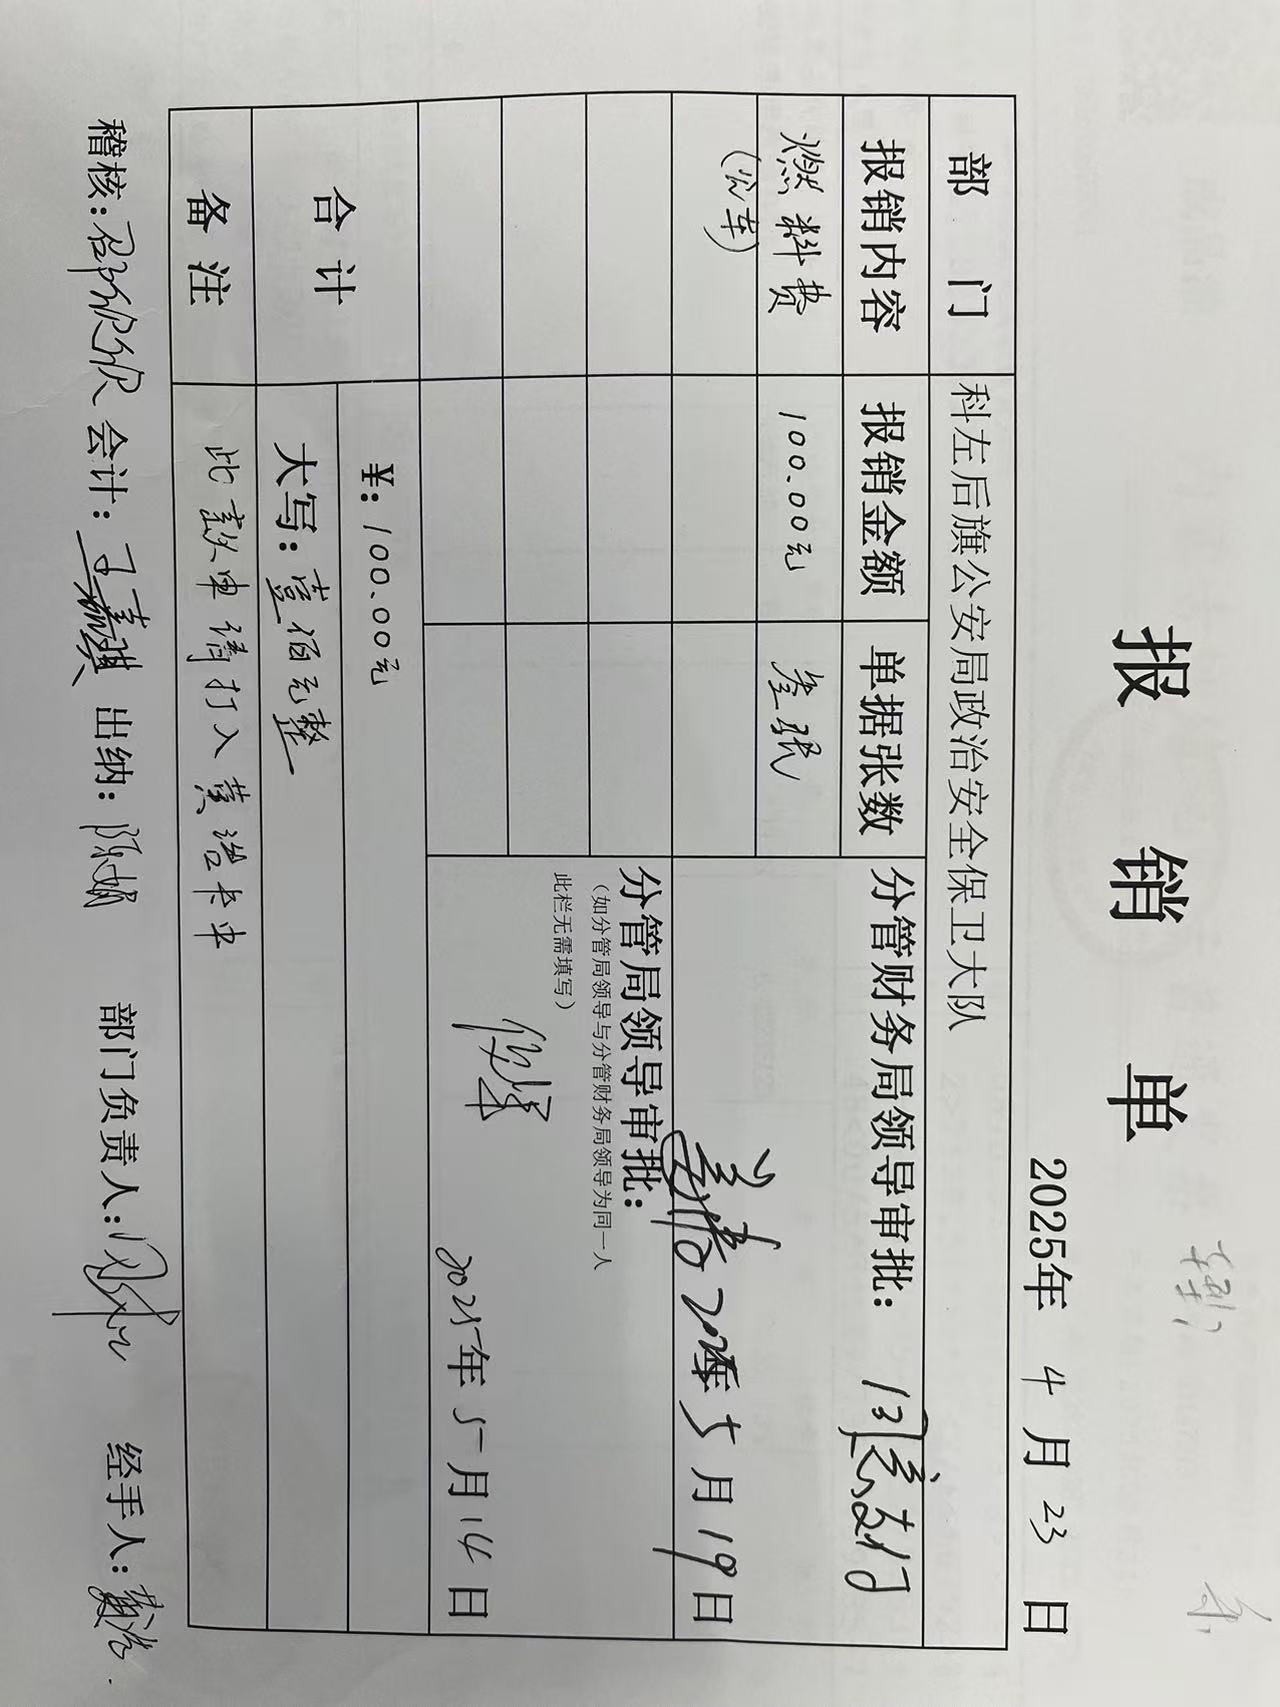 报 销 单
2025年 4 月 23 日
部 门 科左后旗公安局政治安全保卫大队
报销内容 报销金额 单据张数 分管财务局领导审批:
燃料费 100.00元 叁张
(公车)
2025年 5 月 19 日
分管局领导审批:
(如分管局领导与分管财务局领导为同一人
此栏无需填写)
2025年 5 月 14 日
合 计 ¥: 100.00元
大写: 壹佰元整
备 注 此款申请打入黄浩卡中
稽核: 邵欣欣 会计: 王嘉琪 出纳: 陈娟 部门负责人: 经手人: 黄浩